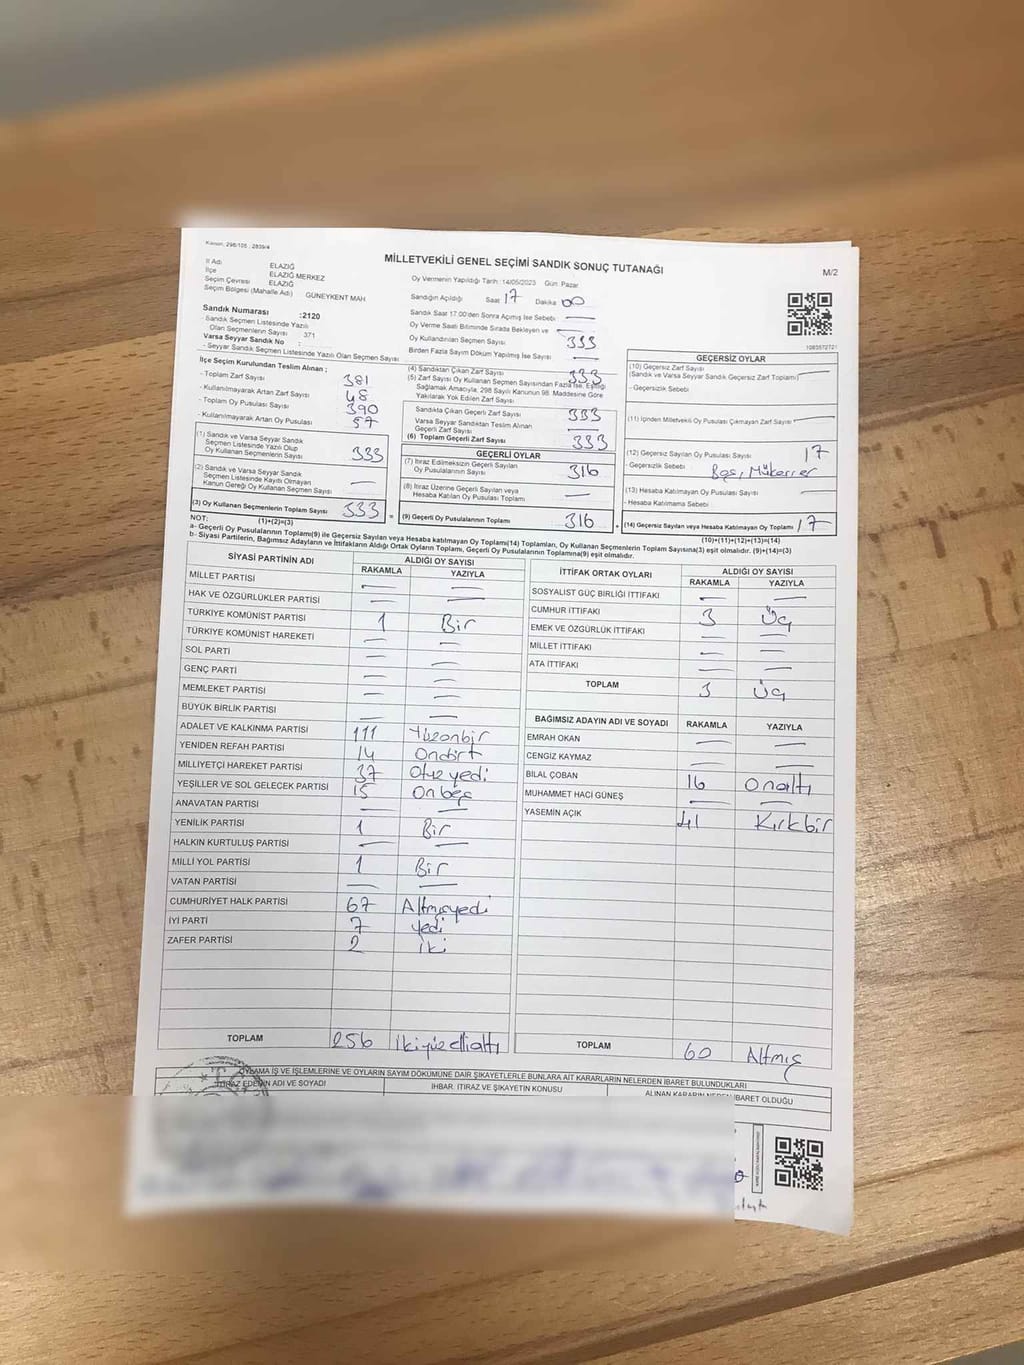 Kanun, 298/105 , 2839/4
MİLLETVEKİLİ GENEL SEÇİMİ SANDIK SONUÇ TUTANAĞI
M/2
İl Adı ELAZIĞ
İlçe ELAZIĞ MERKEZ
Seçim Çevresi ELAZIĞ
Seçim Bölgesi (Mahalle Adı) GÜNEYKENT MAH.
Sandık Numarası :2120
- Sandık Seçmen Listesinde Yazılı
Olan Seçmenlerin Sayısı 371
Varsa Seyyar Sandık No :
- Seyyar Sandık Seçmen Listesinde Yazılı Olan Seçmen Sayısı
Oy Vermenin Yapıldığı Tarih :14/05/2023 Gün: Pazar
Sandığın Açıldığı Saat 17 Dakika 00
Sandık Saat 17:00'den Sonra Açımış İse Sebebi —
Oy Verme Saati Bitiminde Sırada Bekleyen ve —
Oy Kullandırılan Seçmen Sayısı 333
Birden Fazla Sayım Döküm Yapılmış İse Sayısı —
1083572721
İlçe Seçim Kurulundan Teslim Alınan ;
- Toplam Zarf Sayısı 381
- Kullanılmayarak Artan Zarf Sayısı 48
- Toplam Oy Pusulası Sayısı 390
- Kullanılmayarak Artan Oy Pusulası Sayısı 57
(1) Sandık ve Varsa Seyyar Sandık
Seçmen Listesinde Yazılı Olup
Oy Kullanan Seçmenlerin Sayısı 333
(2) Sandık ve Varsa Seyyar Sandık
Seçmen Listesinde Kayıtlı Olmayan
Kanun Gereği Oy Kullanan Seçmen Sayısı —
(3) Oy Kullanan Seçmenlerin Toplam Sayısı 333
(1)+(2)=(3)
(4) Sandıktan Çıkan Zarf Sayısı 333
(5) Zarf Sayısı Oy Kullanan Seçmen Sayısından Fazla İse, Eşitliği
Sağlamak Amacıyla, 298 Sayılı Kanunun 98. Maddesine Göre
Yakılarak Yok Edilen Zarf Sayısı
Sandıkta Çıkan Geçerli Zarf Sayısı 333
Varsa Seyyar Sandıktan Teslim Alınan
Geçerli Zarf Sayısı —
(6) Toplam Geçerli Zarf Sayısı 333
GEÇERLİ OYLAR
(7) İtiraz Edilmeksizin Geçerli Sayılan
Oy Pusulalarının Sayısı 316
(8) İtiraz Üzerine Geçerli Sayılan veya
Hesaba Katılan Oy Pusulası Toplamı —
= (9) Geçerli Oy Pusulalarının Toplamı 316
GEÇERSİZ OYLAR
(10) Geçersiz Zarf Sayısı
(Sandık ve Varsa Seyyar Sandık Geçersiz Zarf Toplamı) —
- Geçersizlik Sebebi
(11) İçinden Milletvekili Oy Pusulası Çıkmayan Zarf Sayısı —
(12) Geçersiz Sayılan Oy Pusulası Sayısı 17
- Geçersizlik Sebebi Boş, Mükerrer
(13) Hesaba Katılmayan Oy Pusulası Sayısı —
- Hesaba Katılmama Sebebi —
+ (14) Geçersiz Sayılan veya Hesaba Katılmayan Oy Toplamı 17
(10)+(11)+(12)+(13)=(14)
NOT:
a- Geçerli Oy Pusulalarının Toplamı(9) ile Geçersiz Sayılan veya Hesaba katılmayan Oy Toplamı(14) Toplamları, Oy Kullanan Seçmenlerin Toplam Sayısına(3) eşit olmalıdır. (9)+(14)=(3)
b- Siyasi Partilerin, Bağımsız Adayların ve İttifakların Aldığı Ortak Oyların Toplamı, Geçerli Oy Pusulalarının Toplamına(9) eşit olmalıdır.
SİYASİ PARTİNİN ADI ALDIĞI OY SAYISI
RAKAMLA YAZIYLA
MİLLET PARTİSİ — —
HAK VE ÖZGÜRLÜKLER PARTİSİ — —
TÜRKİYE KOMÜNİST PARTİSİ 1 Bir
TÜRKİYE KOMÜNİST HAREKETİ — —
SOL PARTİ — —
GENÇ PARTİ — —
MEMLEKET PARTİSİ — —
BÜYÜK BİRLİK PARTİSİ — —
ADALET VE KALKINMA PARTİSİ 111 Yüzonbir
YENİDEN REFAH PARTİSİ 14 Ondört
MİLLİYETÇİ HAREKET PARTİSİ 37 Otuzyedi
YEŞİLLER VE SOL GELECEK PARTİSİ 15 Onbeş
ANAVATAN PARTİSİ — —
YENİLİK PARTİSİ 1 Bir
HALKIN KURTULUŞ PARTİSİ — —
MİLLİ YOL PARTİSİ 1 Bir
VATAN PARTİSİ — —
CUMHURİYET HALK PARTİSİ 67 Altmışyedi
İYİ PARTİ 7 Yedi
ZAFER PARTİSİ 2 İki
TOPLAM 256 İkiyüzellialtı
İTTİFAK ORTAK OYLARI ALDIĞI OY SAYISI
RAKAMLA YAZIYLA
SOSYALİST GÜÇ BİRLİĞİ İTTİFAKI — —
CUMHUR İTTİFAKI 3 Üç
EMEK VE ÖZGÜRLÜK İTTİFAKI — —
MİLLET İTTİFAKI — —
ATA İTTİFAKI — —
TOPLAM 3 Üç
BAĞIMSIZ ADAYIN ADI VE SOYADI RAKAMLA YAZIYLA
EMRAH OKAN — —
CENGİZ KAYMAZ — —
BİLAL ÇOBAN 16 Onaltı
MUHAMMET HACI GÜNEŞ — —
YASEMİN AÇIK 41 Kırkbir
TOPLAM 60 Altmış
OYLAMA İŞ VE İŞLEMLERİNE VE OYLARIN SAYIM DÖKÜMÜNE DAİR ŞİKAYETLERLE BUNLARA AİT KARARLARIN NELERDEN İBARET BULUNDUKLARI
İTİRAZ EDENİN ADI VE SOYADI İHBAR, İTİRAZ VE ŞİKAYETİN KONUSU ALINAN KARARIN NEDEN İBARET OLDUĞU